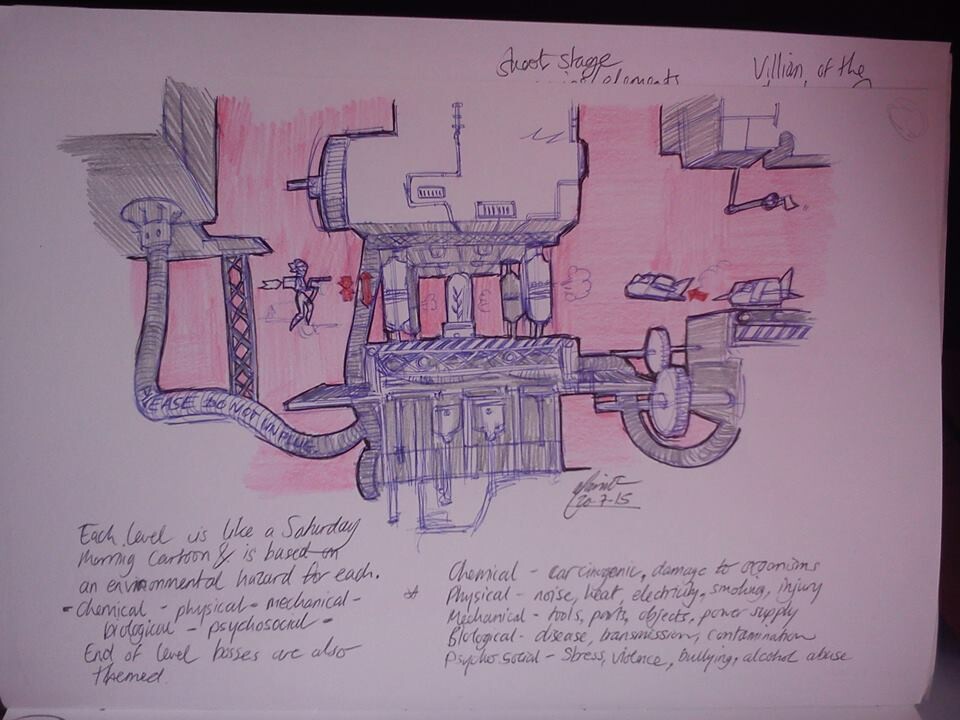 Shoot stage
elements
Villian of the
PLEASE DO NOT UNPLUG
20-7-15
Each level is like a Saturday
morning cartoon & is based on
an environmental hazard for each.
- Chemical - physical - mechanical -
biological - psychosocial -
End of level bosses are also
themed.
Chemical - carcinogenic, damage to organisms
* Physical - noise, heat, electricity, smoking, injury
Mechanical - tools, parts, objects, power supply
Biological - disease, transmission, contamination
Psychosocial - Stress, violence, bullying, alcohol abuse